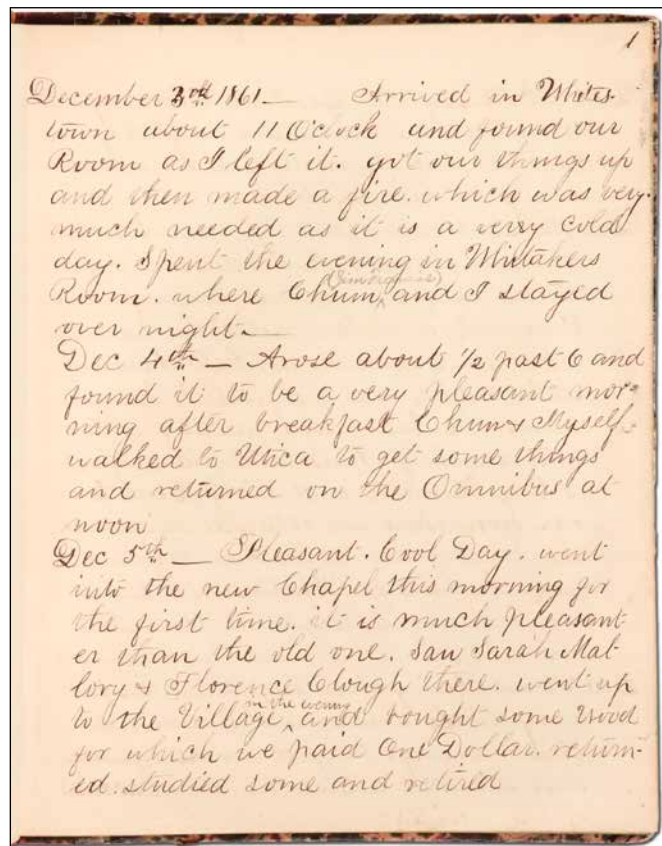 1
December 3rd 1861— Arrived in Whites-
town about 11 O'clock and found our
Room as I left it. got our things up
and then made a fire. which was very-
much needed as it is a verry cold
day. Spent the evening in Whitakers
Room. where Chum, and I stayed
over night.—
Dec 4th — Arose about 1/2 past 6 and
found it to be a very pleasant mor=
ning after breakfast Chum & Myself-
walked to Utica to get some things
and returned on the Omnibus at
noon
Dec 5th — Pleasant. Cool Day. went
into the new Chapel this morning for
the first time. it is much pleasant-
er than the old one. Saw Sarah Mal-
lory & Florence Clough there. went up
in the evening
to the Village, and bought some wood
for which we paid One Dollar. return-
ed. studied some and retired